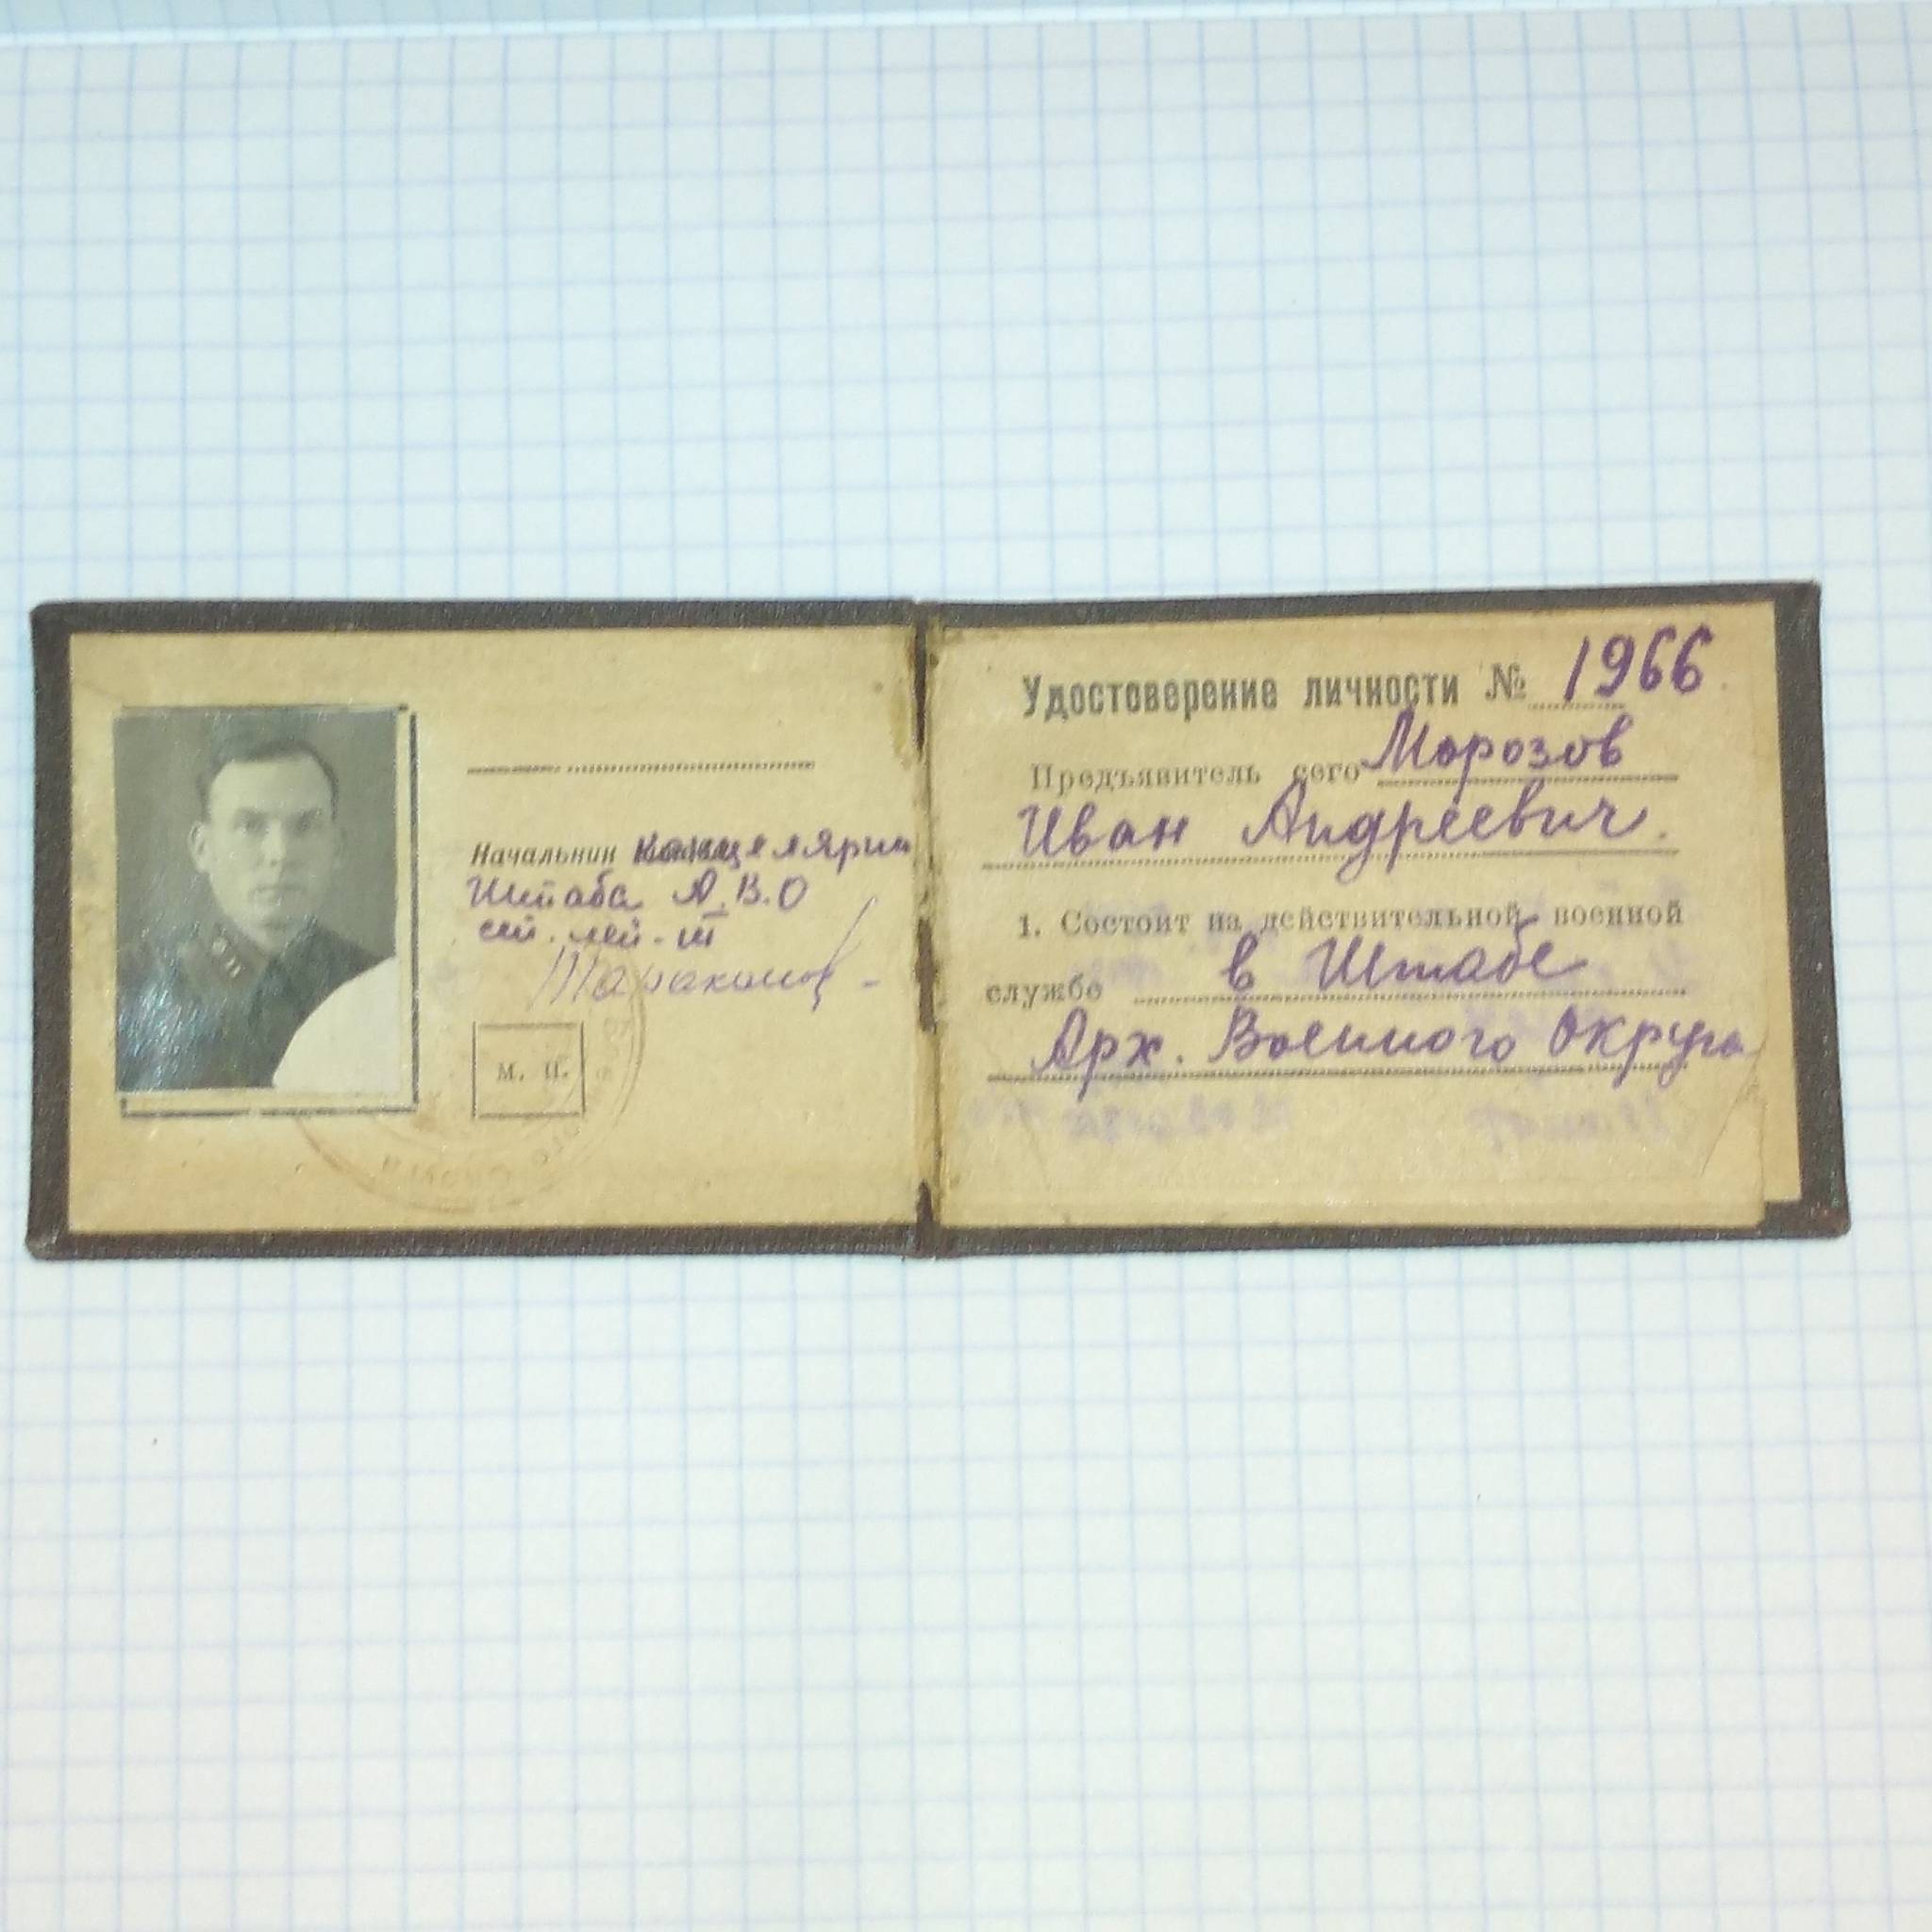 Начальник канцелярии
Штаба А.В.О
лей-т
Тараканов
М. П.
Округа
Удостоверение личности № 1966
Предъявитель сего Морозов
Иван Андреевич.
1. Состоит на действительной военной
службе в Штабе
Арх. Военного Округа